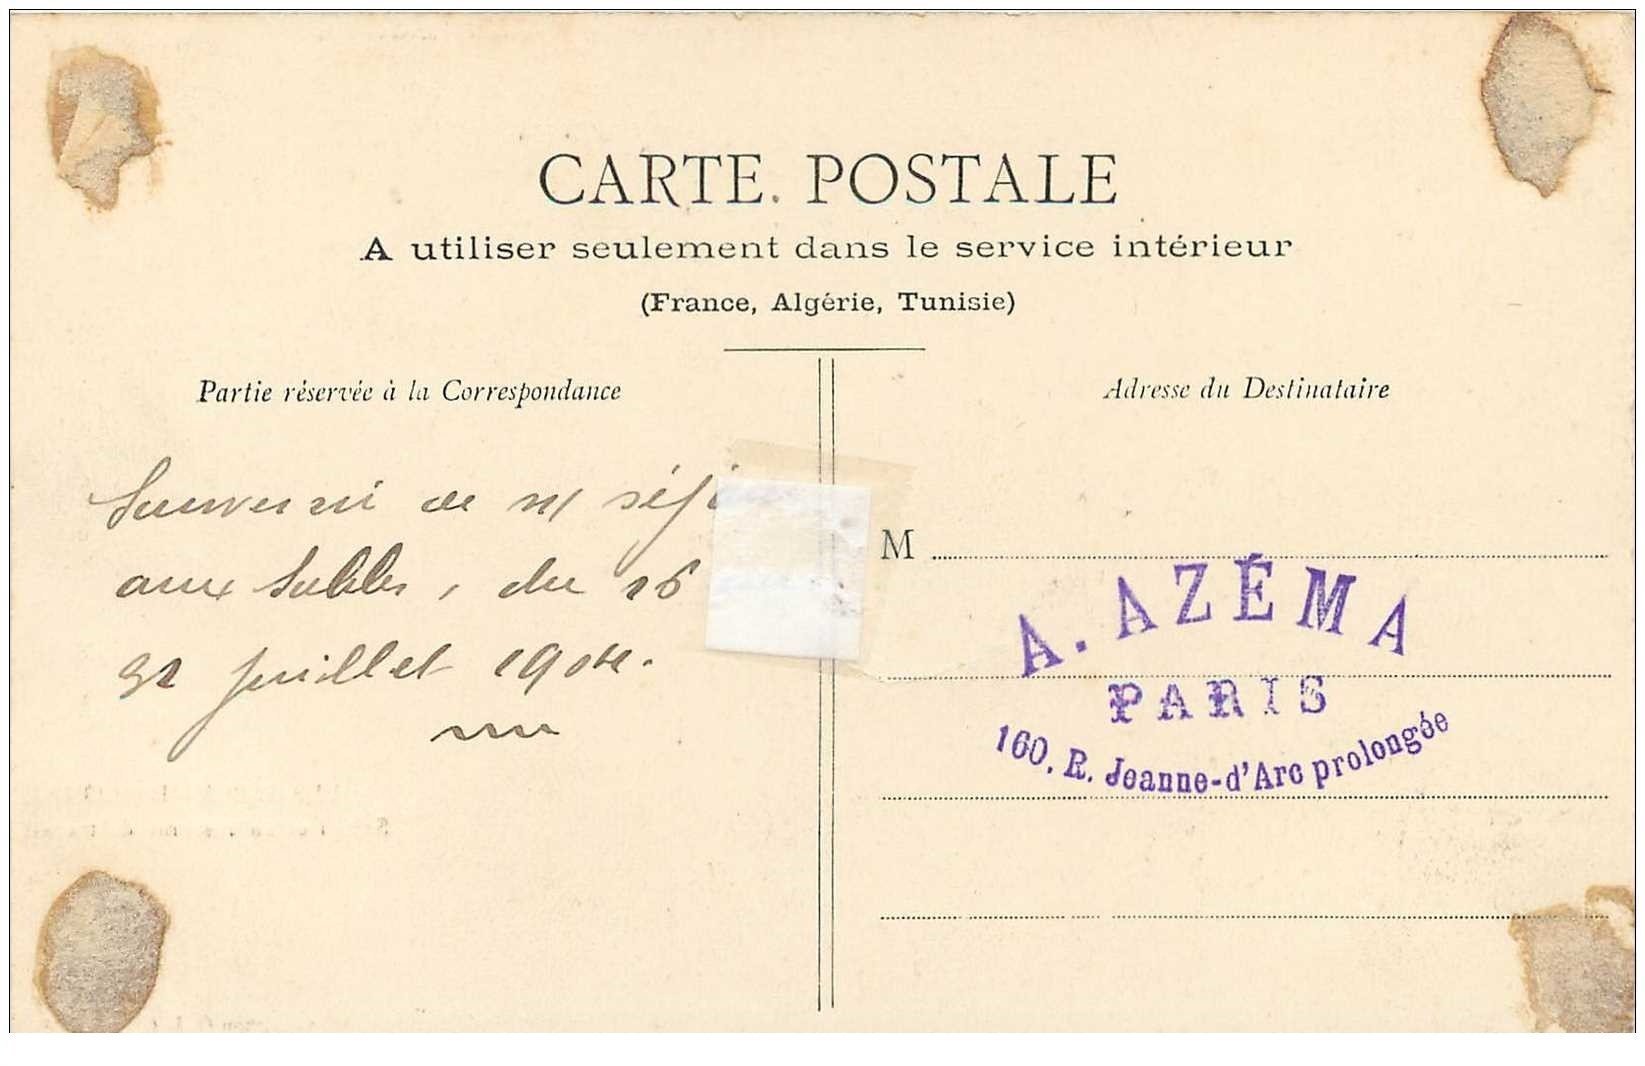 CARTE POSTALE
A utiliser seulement dans le service intérieur
(France, Algérie, Tunisie)
Partie réservée à la Correspondance
Souvenir de
aux Sables, du 16
31 juillet 1904.
Adresse du Destinataire
M
A. AZÉMA
PARIS
160, R. Jeanne-d'Arc prolongée